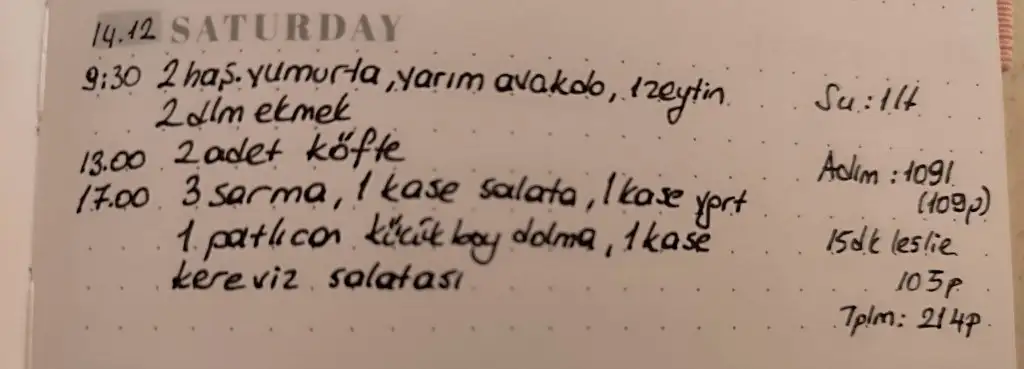 14.12 SATURDAY
9:30 2 haş. yumurta, yarım avakdo, 1 zeytin
2 dlm ekmek
13.00 2 adet köfte
17.00 3 sarma, 1 kase salata, 1 kase yğrt
1 patlıcan küçük boy dolma, 1 kase
kereviz salatası
Su: 1 lt
Adım: 1091
(109p)
15dk leslie
105p
Tplm: 214p